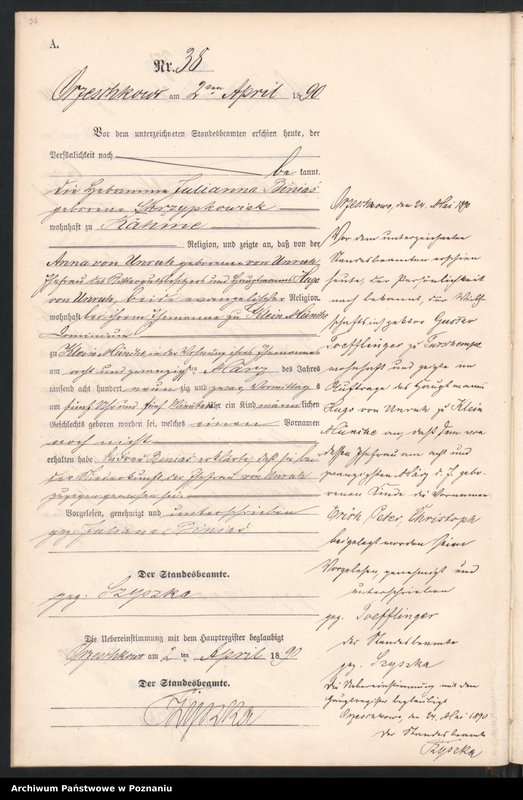 A.
Nr. 38
Orzeschkowo am 2ten April 1890
Vor dem unterzeichneten Standesbeamten erschien heute, der
Persönlichkeit nach
be kannt,
die Hebamme Julianna Binias
geborene Skrzypkowiak
wohnhaft zu Kähme
Religion, und zeigte an, daß von der
Anna von Unruh geborene von Unruh
Ehefrau des Rittergutsbesitzers und Hauptmanns Hugo
von Unruh, beide evangelischer Religion,
wohnhaft bei ihrem Ehemanne zu Klein Münche
Dominium
zu Klein Münche in der Wohnung ihres Ehemannes
am acht und zwanzigsten März des Jahres
tausend acht hundert neun zig und zwar Vormittags
um fünf Uhr und fünf Minuten ein Kind männlichen
Geschlechts geboren worden sei, welches einen Vornamen
noch nicht
erhalten habe. Die Binias erklärte, daß sie bei
der Niederkunft der Ehefrau von Unruh
zugegen gewesen sei.
Vorgelesen, genehmigt und unterschrieben
gez. Juliana Binias
Der Standesbeamte.
gez. Szyszka
Die Uebereinstimmung mit dem Hauptregister beglaubigt
Orzeschkowo am 2 ten April 1890
Der Standesbeamte.
Szyszka
Orzeschkowo, den 24. Mai 1890
Vor dem unterzeichneten
Standesbeamten erschien
heute, der Persönlichkeit
nach bekannt, der Wirth-
schaftsinspektor Gustav
Toefflinger zu
wohnhaft und zeigte im
Auftrage des Hauptmanns
Hugo von Unruh zu Klein
Münche an, daß dem von
dessen Ehefrau am acht und
zwanzigsten März d. J. gebo-
renen Kinde die Vornamen
Erich Peter Christoph
beigelegt worden seien
Vorgelesen genehmigt und
unterschrieben
gez. Toefflinger
der Standesbeamte
gez. Szyszka
Die Uebereinstimmung mit dem
Hauptregister beglaubigt
Orzeschkowo, den 24. Mai 1890
Der Standesbeamte
Szyszka
Archiwum Państwowe w Poznaniu